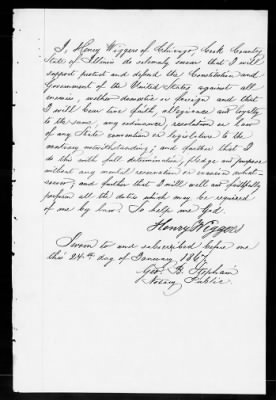 I, Henry Wiggers of Chicago, Cook County
State of Illinois do solemnly swear that I will
support protect and defend the Constitution and
Government of the United States against all
enemies, wether domestic or foreign and that
I will bear true faith, allegiance and loyalty
to the same, any ordinance, resolution or law
of any State convention or legislature to the
contrary notwithstanding; and further that I
do this with full determination, pledge and purpose
without any mental reservation or evasion what-
soever; and further that I will well and faithfully
perform all the duties which may be required
of me by law. So help me God.
Henry Wiggers
Sworn to and subscribed before me
this 24th day of January 1867
Geo. B.
Notary Public.